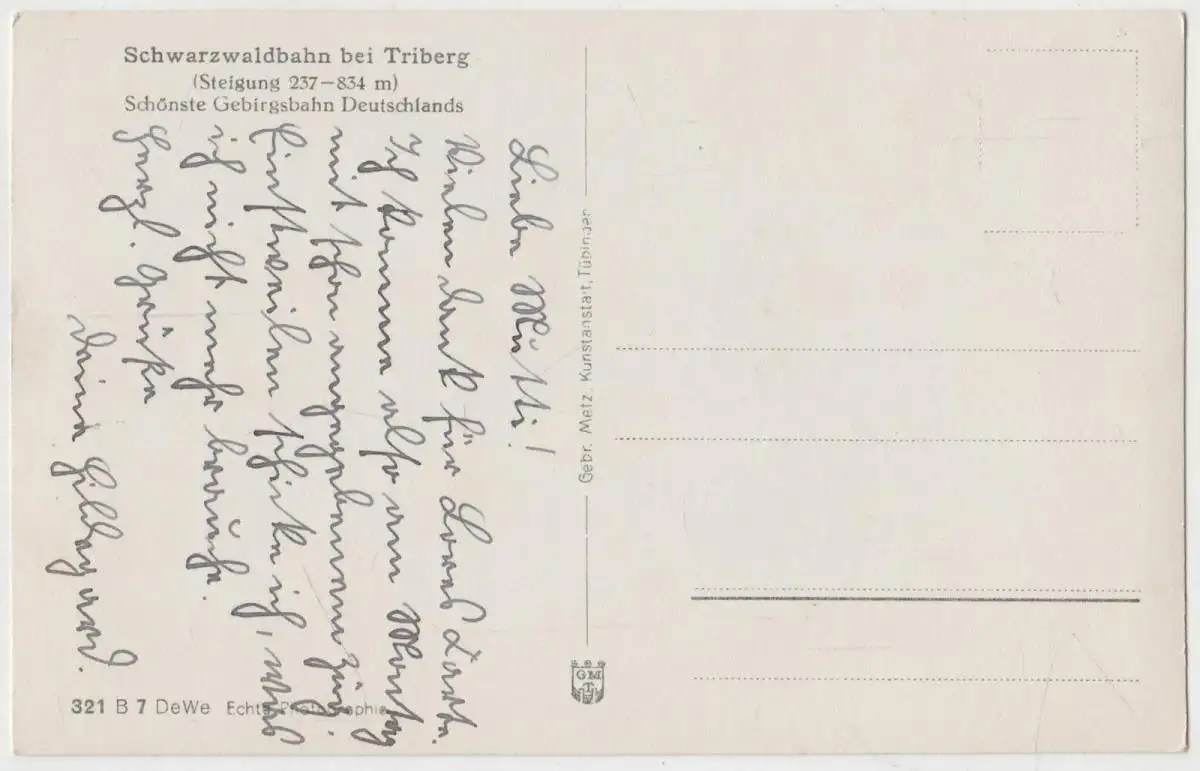 Schwarzwaldbahn bei Triberg
(Steigung 237–834 m)
Schönste Gebirgsbahn Deutschlands
Liebe Mutti!
Vielen Dank für Eure Karte.
Ich komme also am Montag
mit schon angegebenem Zug.
Einstweilen schicke ich, was
ich nicht mehr brauche.
Herzl. Grüße
Deine Hildegard.
Gebr. Metz, Kunstanstalt, Tübingen
GMT
321 B 7 DeWe Echte Photographie